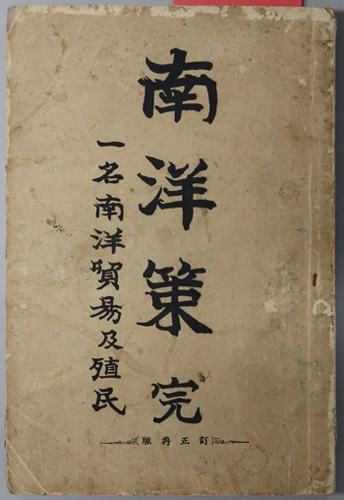 南洋策 完
一名南洋貿易及殖民
版再正訂